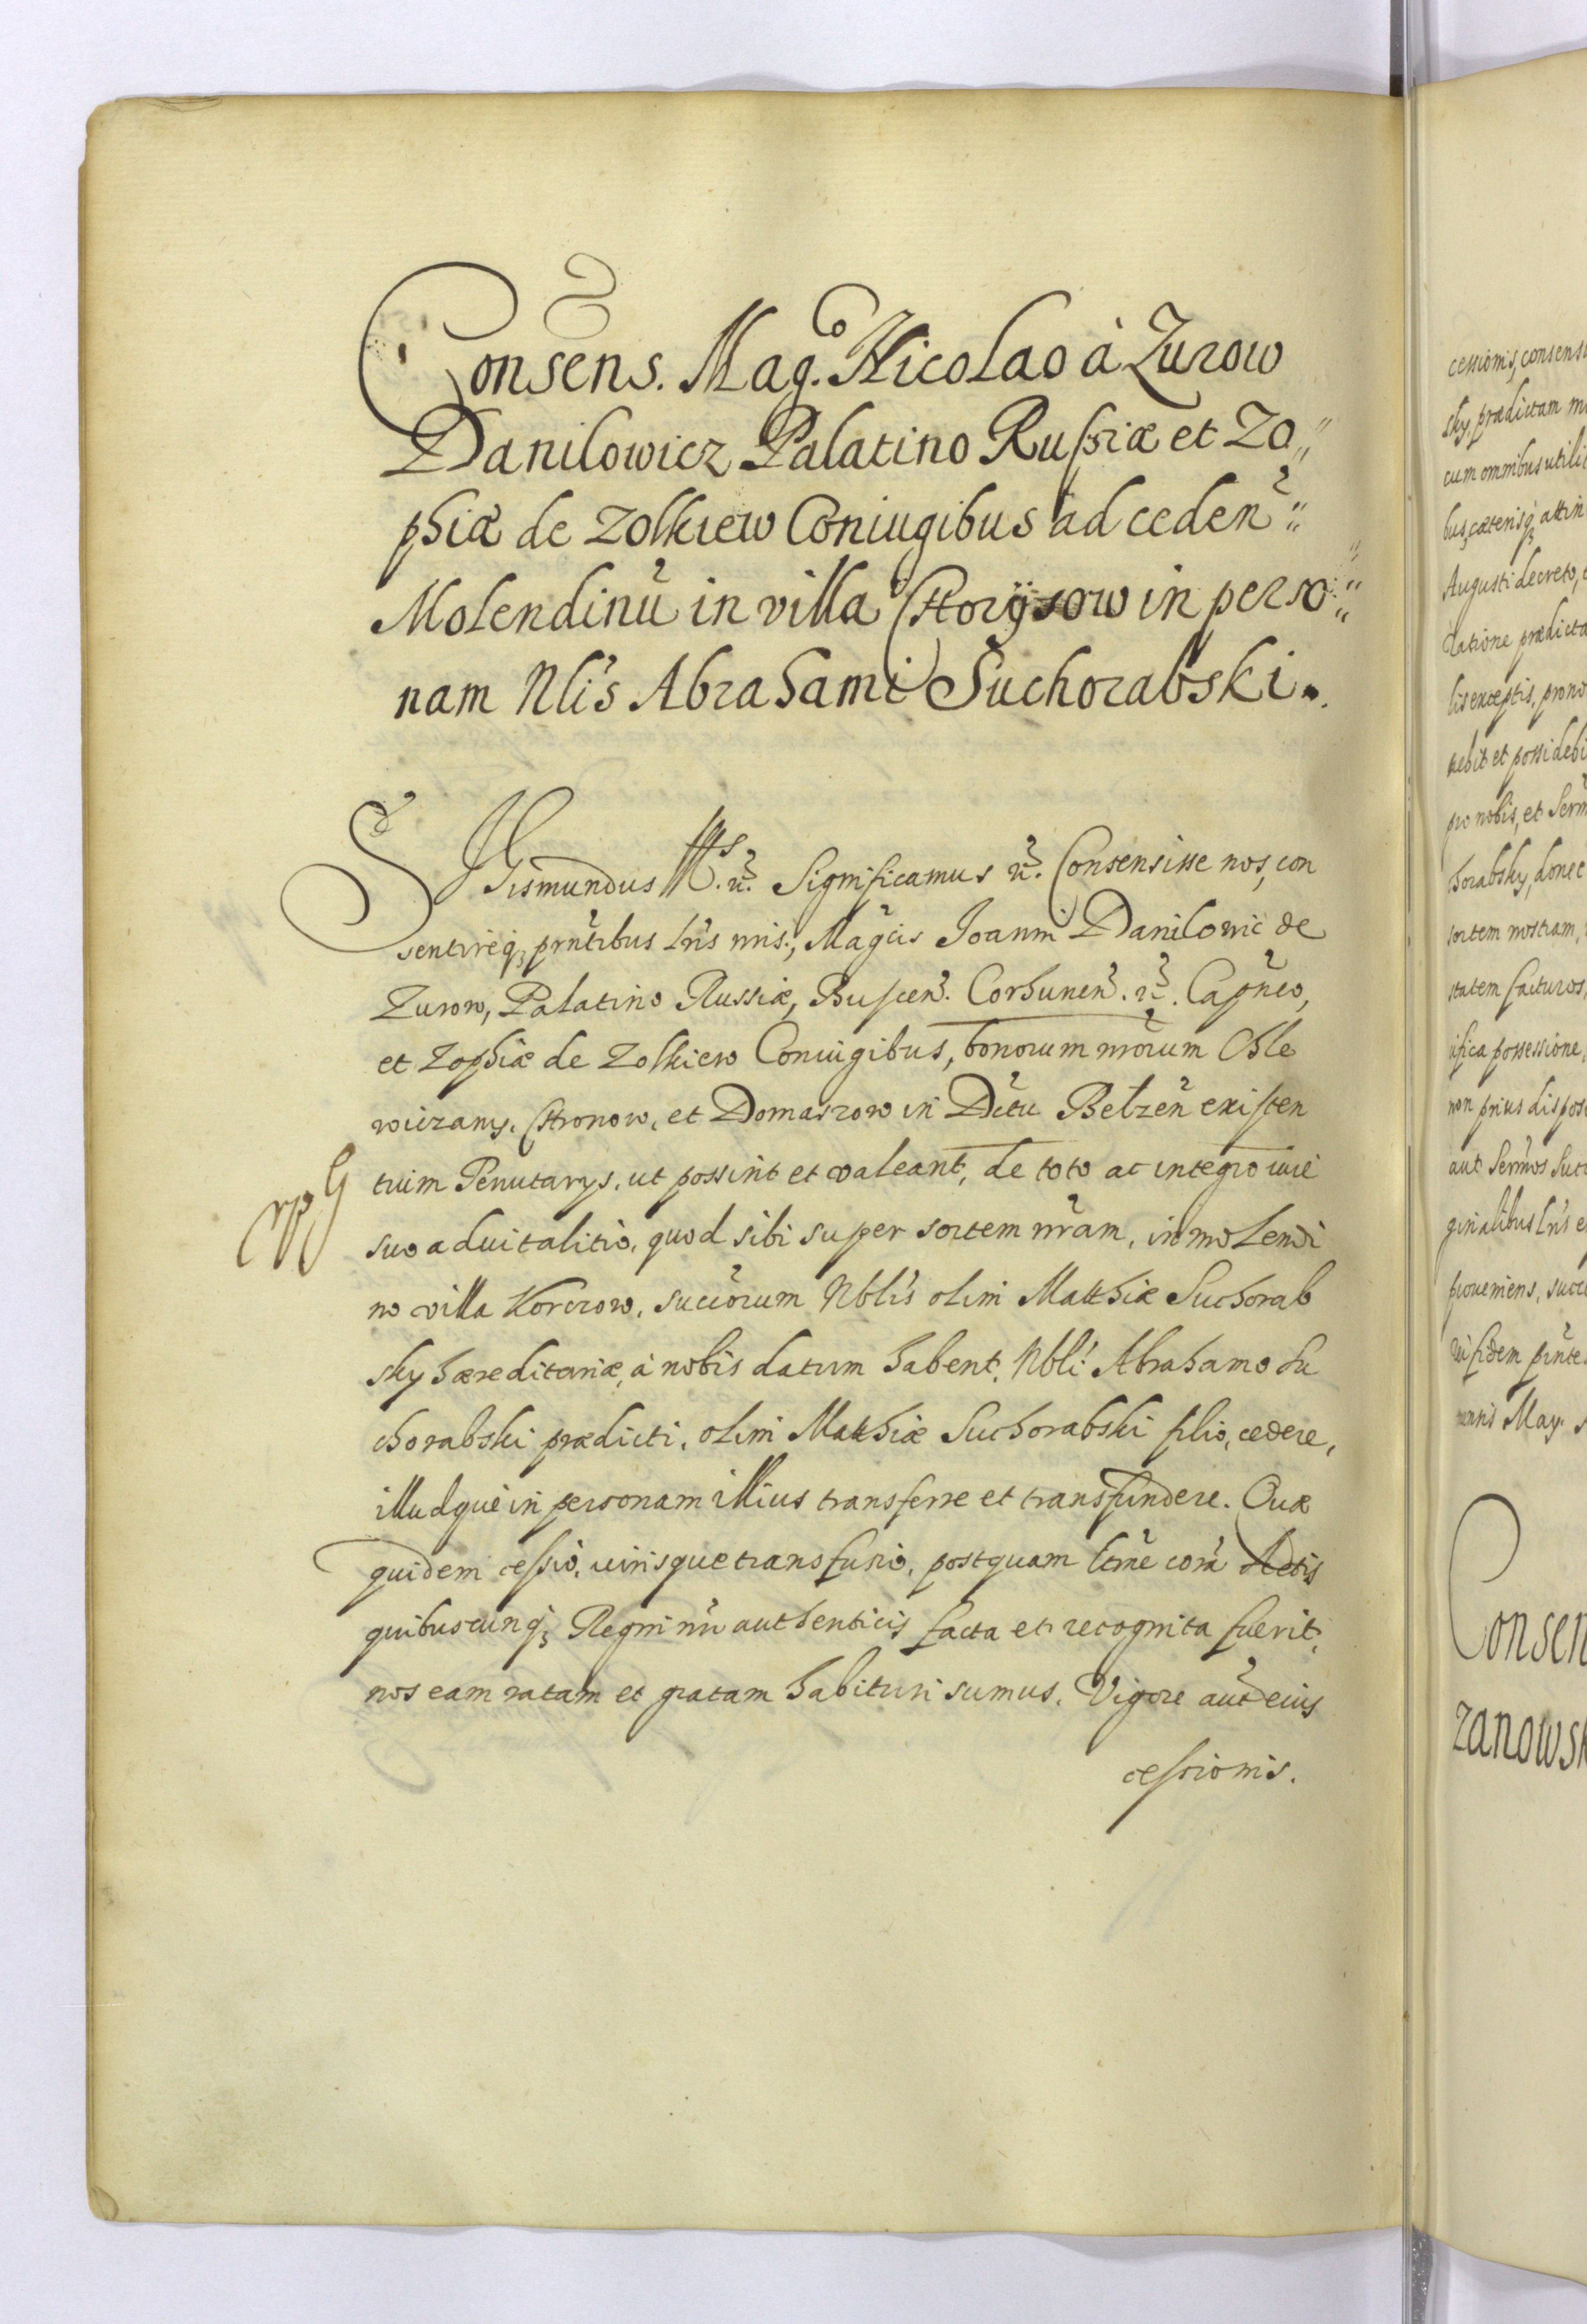 Consens. Mag.co Nicolao à Zurow
Danilowicz Palatino Russiæ et Zo
phiæ de Zolkiew Coniugibus ad ceden
Molendinũ in villa in perso
nam Nlis Abrahami Suchorabski.
Sigismundus IIIs. Significamus Consensisse nos, con
sentireq; prñtibus lris nris, Magcis Joanni Danilowic de
Zurow, Palatino Russiæ, Buscen. Corsunen. Capneo,
et Zophiæ de Zolkiew Coniugibus, bonorum nrorum Chle
wiczany, Chronow, et Domaszow in Dctu Belzen existen
tium Tenutarys, ut possint et valeant, de toto ac integro iure
suo aduitalitio, quod sibi super sortem nram, in molendi
no villa Korczow, succorum Nblis olim Matthiæ Suchorab
sky hæreditariæ, à nobis datum habent, Nbli Abrahamo Su
chorabski prædicti, olim Matthiæ Suchorabski filio, cedere,
illudque in personam illius transferre et transfundere. Quæ
quidem cessio, iurisque transfusio, postquam ltme coram Actis
quibuscunq; Regni nri authenticis facta et recognita fuerit,
nos eam ratam et gratam habituri sumus. Vigore aut eius
cessionis.
cessionis, consens
sky prædictam
cum omnibus utili
bus, cæterisq; attin
Augusti decreto,
ratione prædicta
lis exceptis, pro
nebit et possidebi
pro nobis, et Serm
chorabsky, donec
sortem nostram,
statem facturos,
ifica possessione,
non prius dispos
aut Sermos Suc
ginalibus lris e
proueniens, succ
in fidem prñte
mensis May.
Consen
zanowsk